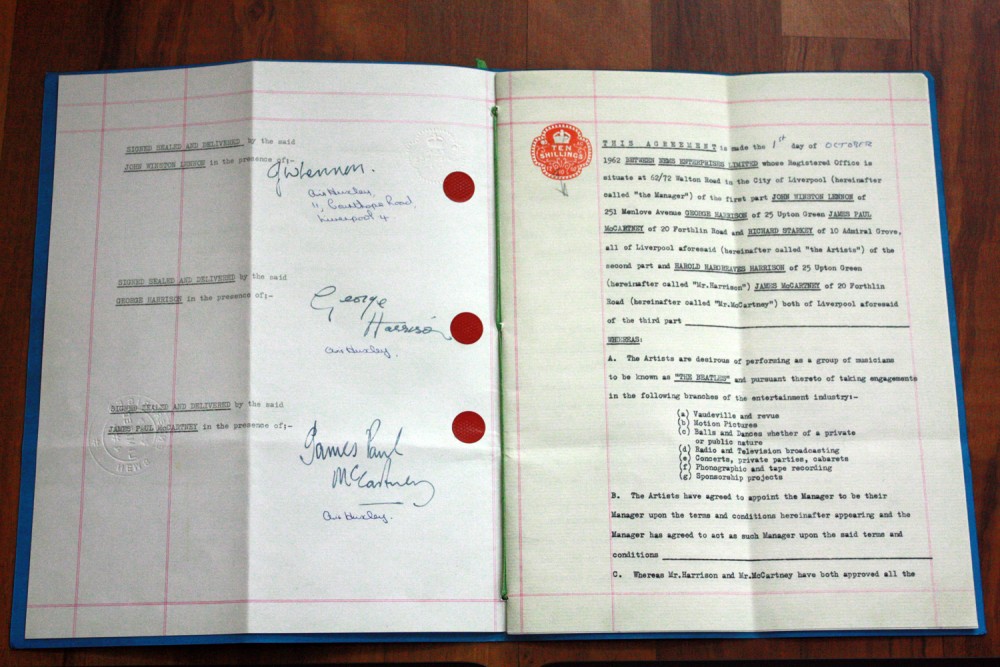 SIGNED SEALED AND DELIVERED by the said
JOHN WINSTON LENNON in the presence of:-
JWLennon.
11,
Liverpool 4.
SIGNED SEALED AND DELIVERED by the said
GEORGE HARRISON in the presence of:-
George
Harrison
SIGNED SEALED AND DELIVERED by the said
JAMES PAUL McCARTNEY in the presence of:-
James Paul
McCartney
TEN
SHILLINGS
THIS AGREEMENT is made the 1st day of OCTOBER
1962 BETWEEN NEMS ENTERPRISES LIMITED whose Registered Office is
situate at 62/72 Walton Road in the City of Liverpool (hereinafter
called "the Manager") of the first part JOHN WINSTON LENNON of
251 Menlove Avenue GEORGE HARRISON of 25 Upton Green JAMES PAUL
McCARTNEY of 20 Forthlin Road and RICHARD STARKEY of 10 Admiral Grove,
all of Liverpool aforesaid (hereinafter called "the Artists") of the
second part and HAROLD HARGREAVES HARRISON of 25 Upton Green
(hereinafter called "Mr.Harrison") JAMES McCARTNEY of 20 Forthlin
Road (hereinafter called "Mr.McCartney") both of Liverpool aforesaid
of the third part
WHEREAS:
A. The Artists are desirous of performing as a group of musicians
to be known as "THE BEATLES" and pursuant thereto of taking engagements
in the following branches of the entertainment industry:-
(a) Vaudeville and revue
(b) Motion Pictures
(c) Balls and Dances whether of a private
or public nature
(d) Radio and Television broadcasting
(e) Concerts, private parties, cabarets
(f) Phonographic and tape recording
(g) Sponsorship projects
B. The Artists have agreed to appoint the Manager to be their
Manager upon the terms and conditions hereinafter appearing and the
Manager has agreed to act as such Manager upon the said terms and
conditions
C. Whereas Mr.Harrison and Mr.McCartney have both approved all the